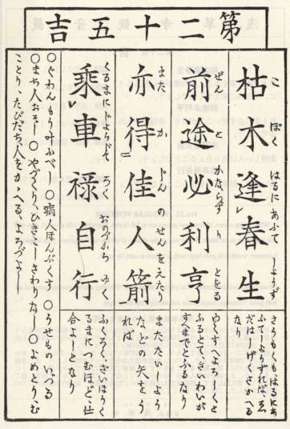 第二十五吉
枯木逢春生
こ ぼく はるにあふて しようず
さうもくもはるにあ
ふてしようずればゑ
だはしげくさかへる
なり
前途必利亨
ぜん と かならず り とをる
ふるとてさいわいが
すへまでとふるなり
亦得佳人箭
また か じんのせんをえたり
またたいしよう
などの矢をう
れば
乗車禄自行
くるまにじようじて ろく おのづから ゆく
ふくろくさいはひく
るまにつむほどに仕
合よしとなり
○ぐわんもう叶ふべし ○病人ほんぶくす ○うせものいづる
○まち人おそし ○やづくりひきこしさわりなし ○よめとりむ
ことり、たびだち人をかゝへる、よろづよし